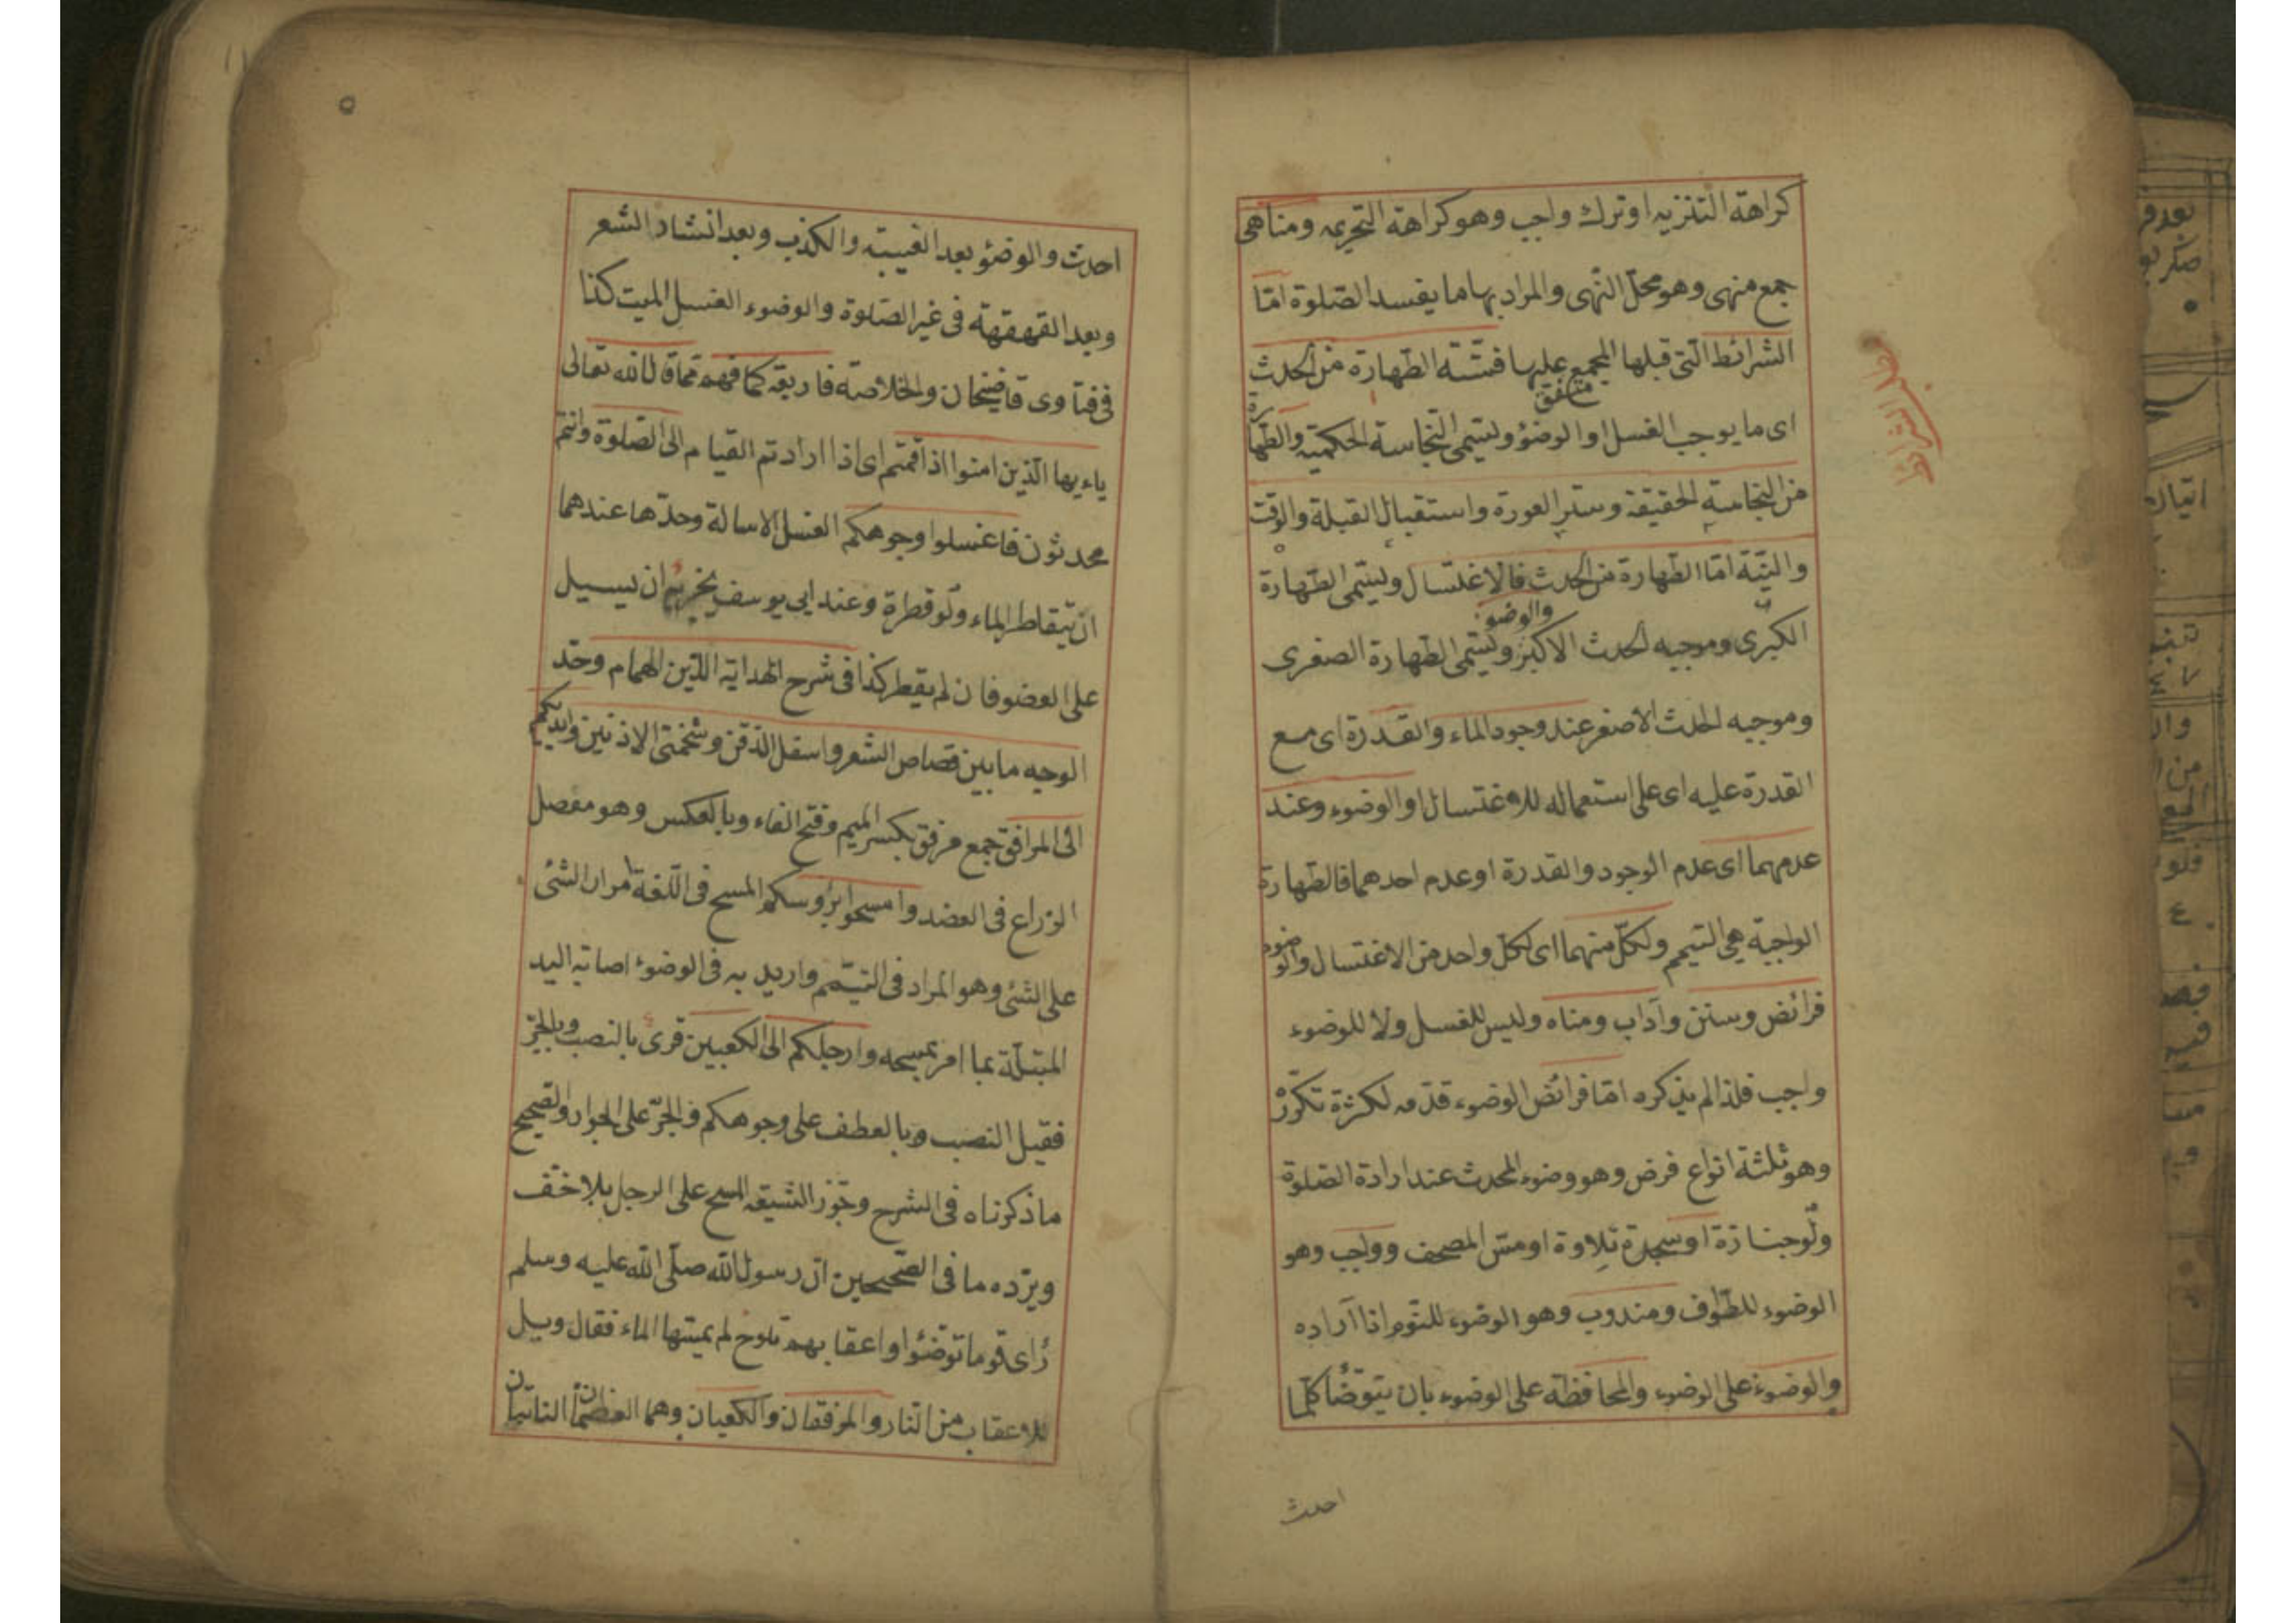 كراهة التنزيه او ترك واجب وهو كراهة التحريمه ومناهى
جمع منهى وهو محلّ النّهى والمراد بها ما يفسد الصّلوة امّا
الشرائط الّتى قبلها المجمع عليها فستّة الطّهارة من الحدث
متفق
اى ما يوجب الغسل او الوضؤ وليتمى النّجاسة الحكميّة والطّهارة
من النجاسة الحقيقة وستر العورة واستقبال القبلة والوقت
والنيّة امّا الطّهارة من الحدث فالاغتسال وليتمى الطّهارة
والوضوء
الكبرى وموجبه الحدث الاكبر وليتمى الطّهارة الصغرى
وموجبه الحدث الاصغر عند وجود الماء والقدرة اى مع
القدرة عليه اى على استعماله للاغتسال او الوضوء وعند
عدمهما اى عدم الوجود والقدرة او عدم احدهما فالطّهارة
الواجبة هى التيمم ولكلّ منهما اى لكلّ واحد من الاغتسال والوضوء
فرائض وسنن وآداب ومناه وليس للغسل ولا للوضوء
واجب فلذا لم يذكره امّا فرائض الوضوء قدّمه لكثرة تكرّر
وهو ثلثة انواع فرض وهو وضوء المحدث عند ارادة الصّلوة
ولو جنازة او سجدة تلاوة او مسّ المصحف وواجب وهو
الوضوء للطّوف ومندوب وهو الوضوء للنّوم اذا آراده
والوضوء على الوضوء والمحافظة على الوضوء بان يتوضّأ كلّما
احدث
احدث والوضؤ بعد الغيبة والكذب وبعد انشاد الشعر
وبعد القهقهة فى غير الصّلوة والوضوء الغسل الميت كذا
فى فتاوى قاضيخان والخلاصة فاربعة كما فهم ممّا قال الله تعالى
ياءيها الّذين امنوا اذا قمتم اى اذا ارادتم القيام الى الصّلوة وانتم
محدثون فاغسلوا وجوهكم الغسل الاسالة وحدّها عندهما
ان يتقاطر الماء ولو قطرة وعند ابى يوسف يخريه ان يسيل
على العضو فان لم يقطر كذا فى شرح الهداية الدّين الهمام وحدّ
الوجه ما بين قصاص الشعر واسفل الذقن وشحمتى الاذنين وايديكم
الى المرافق جمع مرفق بكسر الميم وفتح الفاء وبالعكس وهو مفصل
الزراع فى العضد وامسحوا برؤسكم المسح فى اللّغة امرار الشئ
على الشئ وهو المراد فى التيمّم واريد به فى الوضوء اصابة اليد
المبتلّة بما امر بمسحه وارجلكم الى الكعبين قرئ بالنصب وبالجرّ
فقيل النصب وبالعطف على وجوهكم والجرّ على الجوار والصحيح
ما ذكرناه فى الشرح وجوّز الشيعة المسح على الرجل بلا خفّ
ويردّه ما فى الصّحيحين انّ رسول الله صلّى الله عليه وسلم
رأى قوما توضّؤا واعقابهم تلوح لم يمسّها الماء فقال ويل
للاعقاب من النّار والمرفقان والكعبان وهما العظمان الناتيان